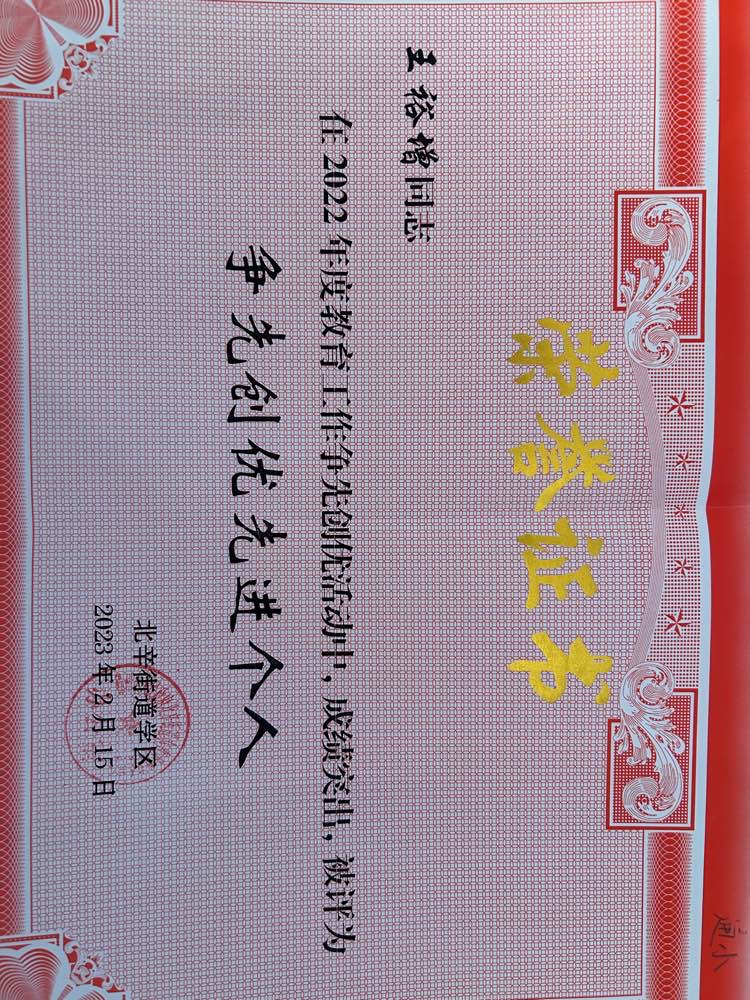 荣誉证书
王裕增同志
在2022年度教育工作争先创优活动中，成绩突出，被评为
争先创优先进个人
北辛街道学区
2023年2月15日
通小